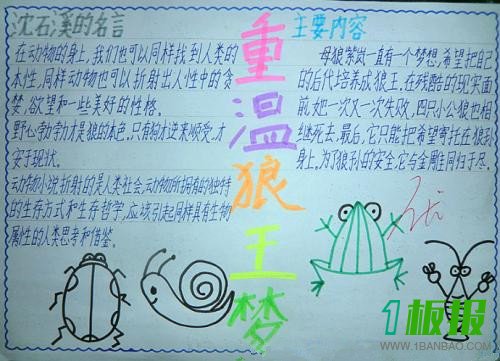 沈石溪的名言
在动物的身上,我们也可以同样找到人类的
本性,同样动物也可以折射出人性中的贪
婪,欲望和一些美好的性格。
野心勃勃才是狼的本色,只有狗才逆来顺受,才
安于现状。
动物小说折射的是人类社会,动物所拥有的独特
的生存方式和生存哲学,应该引起同样具有生物
属性的人类思考和借鉴。
重温狼王梦
主要内容
母狼紫岚一直有一个梦想,希望把自己
的后代培养成狼王,在残酷的现实面
前,她一次又一次失败,四只小公狼也相
继死去,最后,它只能把希望寄托在狼孙
身上,为了狼孙的安全,它与金雕同归于尽。
优
1板报
WWW.1BANBAO.COM